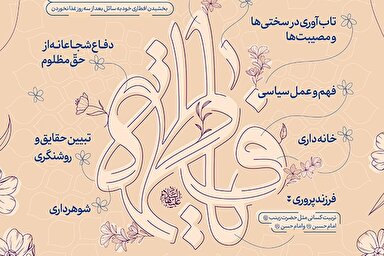 بخشیدن افطاری خود به سائل بعد از سه روز غذا نخوردن
تاب‌آوری در سختی‌ها
و مصیبت‌ها
دفاع شجاعانه از
حق مظلوم
فهم و عمل سیاسی
خانه‌داری
تبیین حقایق و
روشنگری
فاطمه
فرزندپروری
شوهرداری
تربیت کسانی مثل حضرت زینب
امام حسین و امام حسن